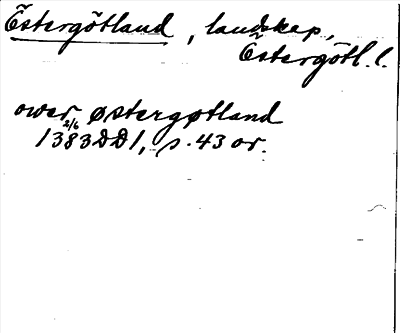 Östergötland, landskap,
Östergötl. l.
over østergøtland
2/6
1383 DD1, s. 43 or.